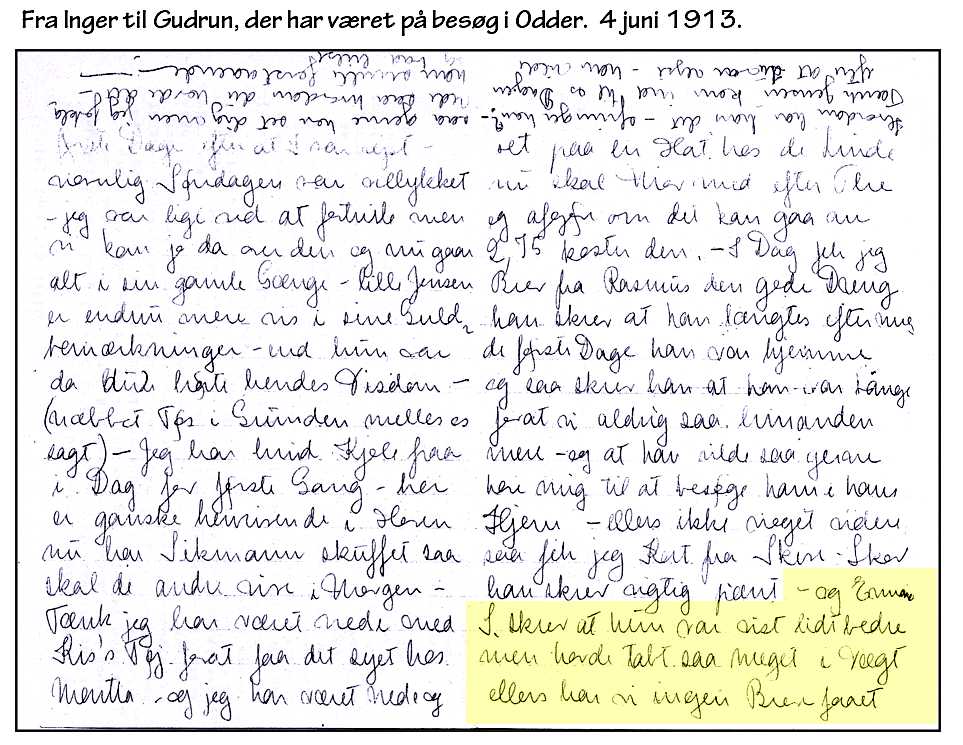 Fra Inger til Gudrun, der har været på besøg i Odder. 4 juni 1913.
saa gerne han set dig men jeg
ned saa hvordan du havde det
ham
Hvordan har han det - springer han?
Jensen kom ind til os Dagen
efter at du var rejst - han
første Dage efter at I var rejst -
navnlig Søndagen var vellykket
- jeg var lige ved at fortvivle men
vi kom jo da over den og nu gaar
alt i sin gamle Gænge - lille Jensen
er endnu mere vis i sine Guld
bemærkninger - end hun var
da I hørte hendes Visdom -
(næbbet Tøs i Grunden mellem os
sagt) - Jeg har hvid Kjole paa
i Dag for første Gang - her
er ganske henrivende i Haven
nu har Sikmann skuffet saa
skal de andre rive i Morgen -
Tænk jeg har været nede med
Kis's Tøj forat faa det syet hos
Martha - og jeg har været nede og
set paa en Hat hos de Linde
nu skal Mor med efter The
og afgøre om det kan gaa an
2,75 koster den. - I Dag fik jeg
Brev fra Rasmus den gode Dreng
han skrev at han længtes efter mig
de første Dage han var hjemme
og saa skrev han at han var bange
forat vi aldrig saa hinanden
mere - og at han vilde saa gerne
have mig til at besøge ham i hans
Hjem - ellers ikke noget videre
saa fik jeg Kort fra Skive - Skov
han skrev rigtig pænt - og Emma
S. skrev at hun var vist lidt bedre
men havde tabt saa meget i Vægt
ellers har vi ingen Brev faaet